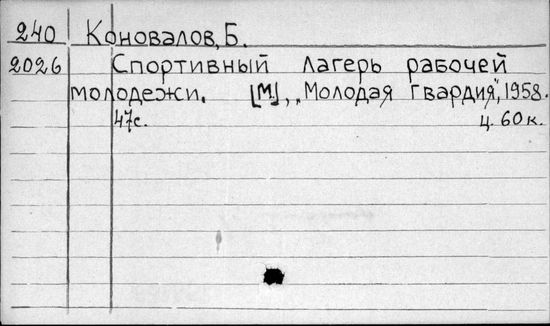 240 Коновалов, Б.
2026 Спортивный лагерь рабочей
молодежи. [М.], „Молодая гвардия", 1958.
47с. ц. 60 к.